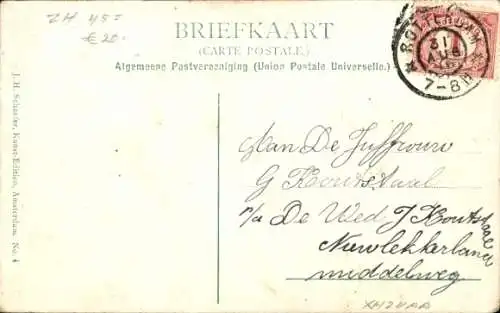 ZH 45=
€ 20-
BRIEFKAART
(CARTE POSTALE.)
Algemeene Postvereeniging (Union Postale Universelle.)
ROTTERDAM
31
AUG
7-8
J. H. Schaefer, Kunst-Edition, Amsterdam. No. 4
Aan De Juffrouw
G Houtstaal
n/a De Wed J Houtstaal
Nieuwlekkerland
middelweg